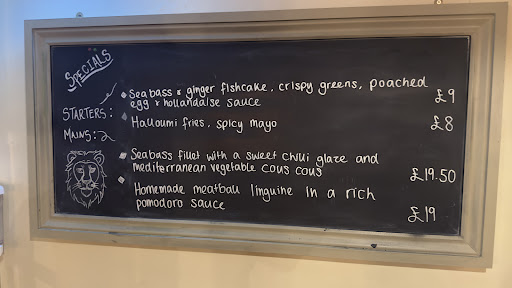 SPECIALS
STARTERS:
Seabass & ginger fishcake, crispy greens, poached
egg & hollandaise sauce £9
Halloumi fries, spicy mayo £8
MAINS:
Seabass fillet with a sweet chilli glaze and
mediterranean vegetable cous cous £19.50
Homemade meatball linguine in a rich
pomodoro sauce £19